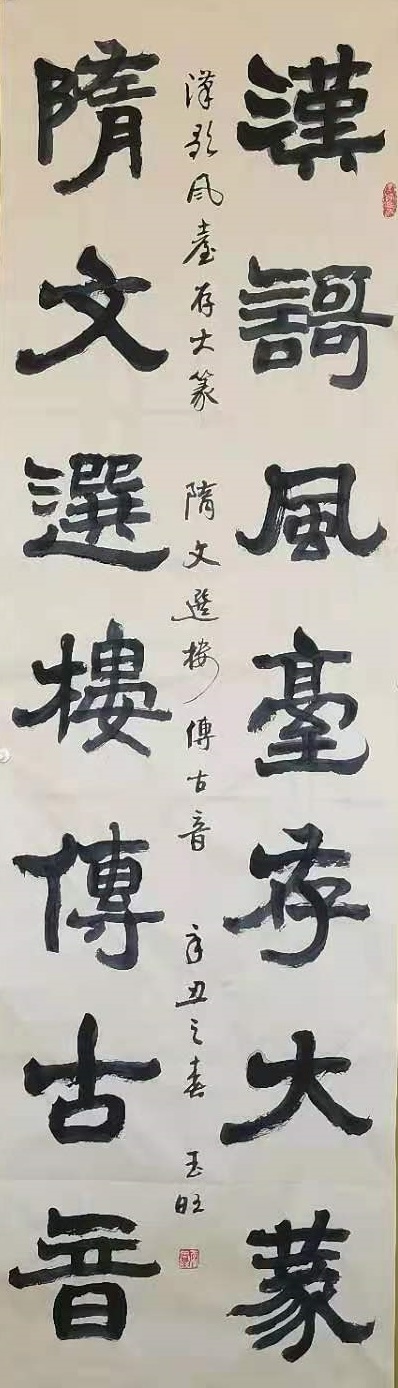 漢謌風臺存大篆
漢歌風臺存大篆 隋文選樓傳古音 辛丑之春 玉旺
隋文選樓傳古音